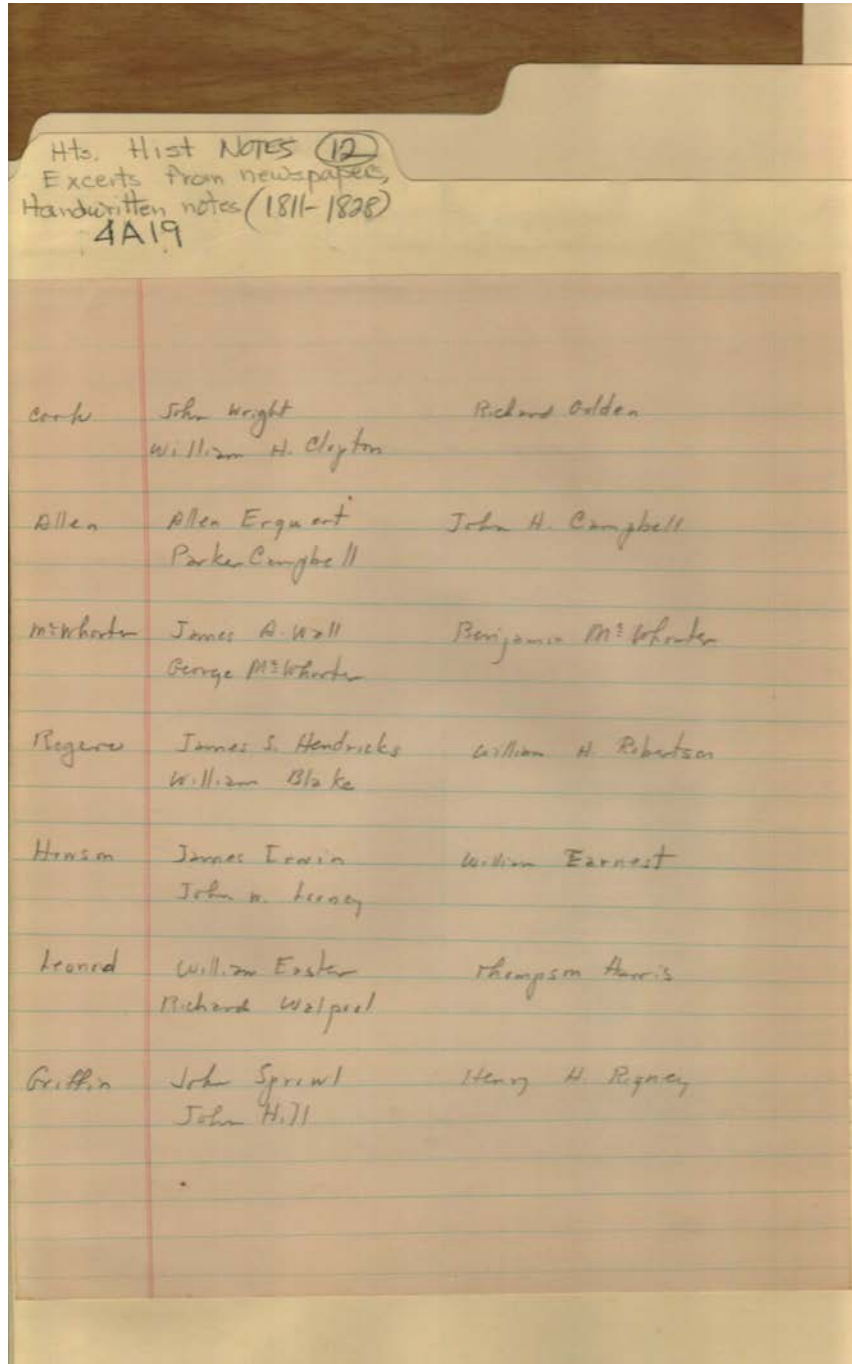 Hts. Hist NOTES (12)
Excerts from newspapers,
Handwritten notes (1811-1828)
4A19
Cook John Wright Richard Oglden
William H. Clayton
Allen Allen Erquert John H. Campbell
Parker Campbell
McWhorter James A. Wall Benjamin McWhorter
George McWhorter
Rogers James S. Hendricks William H. Robertson
William Blake
Henson James Erwin William Earnest
John W. Looney
Leonard William Easter Thompson Harris
Richard Walpool
Griffin John Sprowl Henry H. Rigney
John Hill